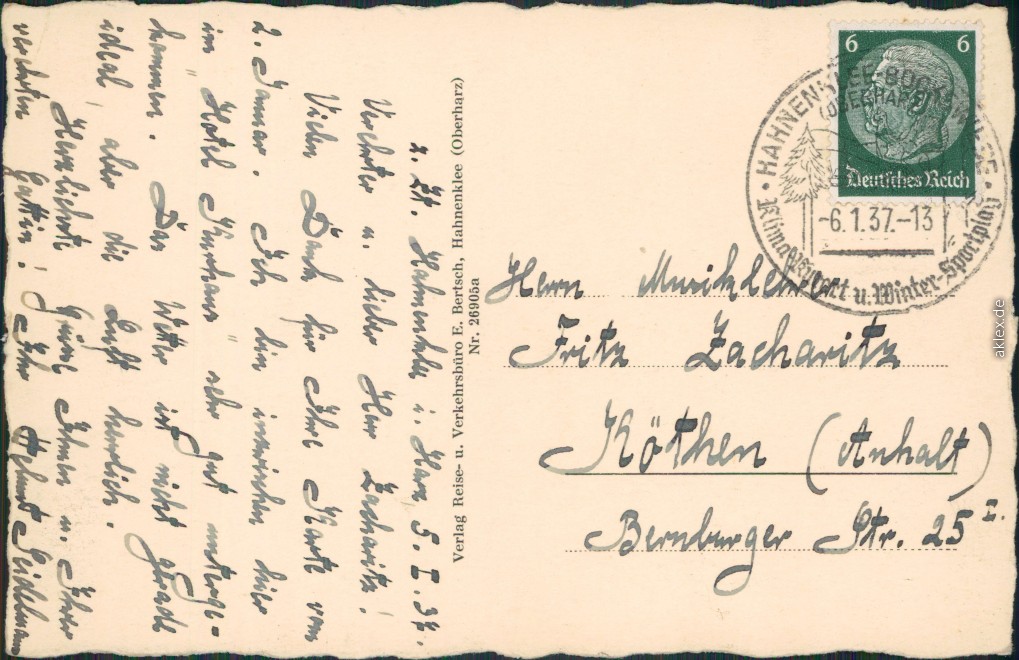 z. Zt. Hahnenklee i. Harz, 5. I. 37.
Verehrter u. lieber Herr Zacharitz!
Vielen Dank für Ihre Karte vom
2. Januar. Ich bin inzwischen hier
im „Hotel Kurhaus" sehr gut unterge-
kommen. Das Wetter ist nicht gerade
ideal, aber die Luft herrlich.
Herzlichste Grüße Ihnen u. Ihrer
verehrten Gattin! Ihr Helmut
Verlag Reise- u. Verkehrsbüro E. Bertsch, Hahnenklee (Oberharz)
Nr. 26905a
6 6
Deutsches Reich
HAHNENKLEE-BOCKSWIESE
(OBERHARZ)
-6.1.37.-13
Klimat. Kurort u. Winter-Sportplatz
Herrn Musiklehrer
Fritz Zacharitz
Köthen (Anhalt)
Bernburger Str. 25 I.
aklex.de